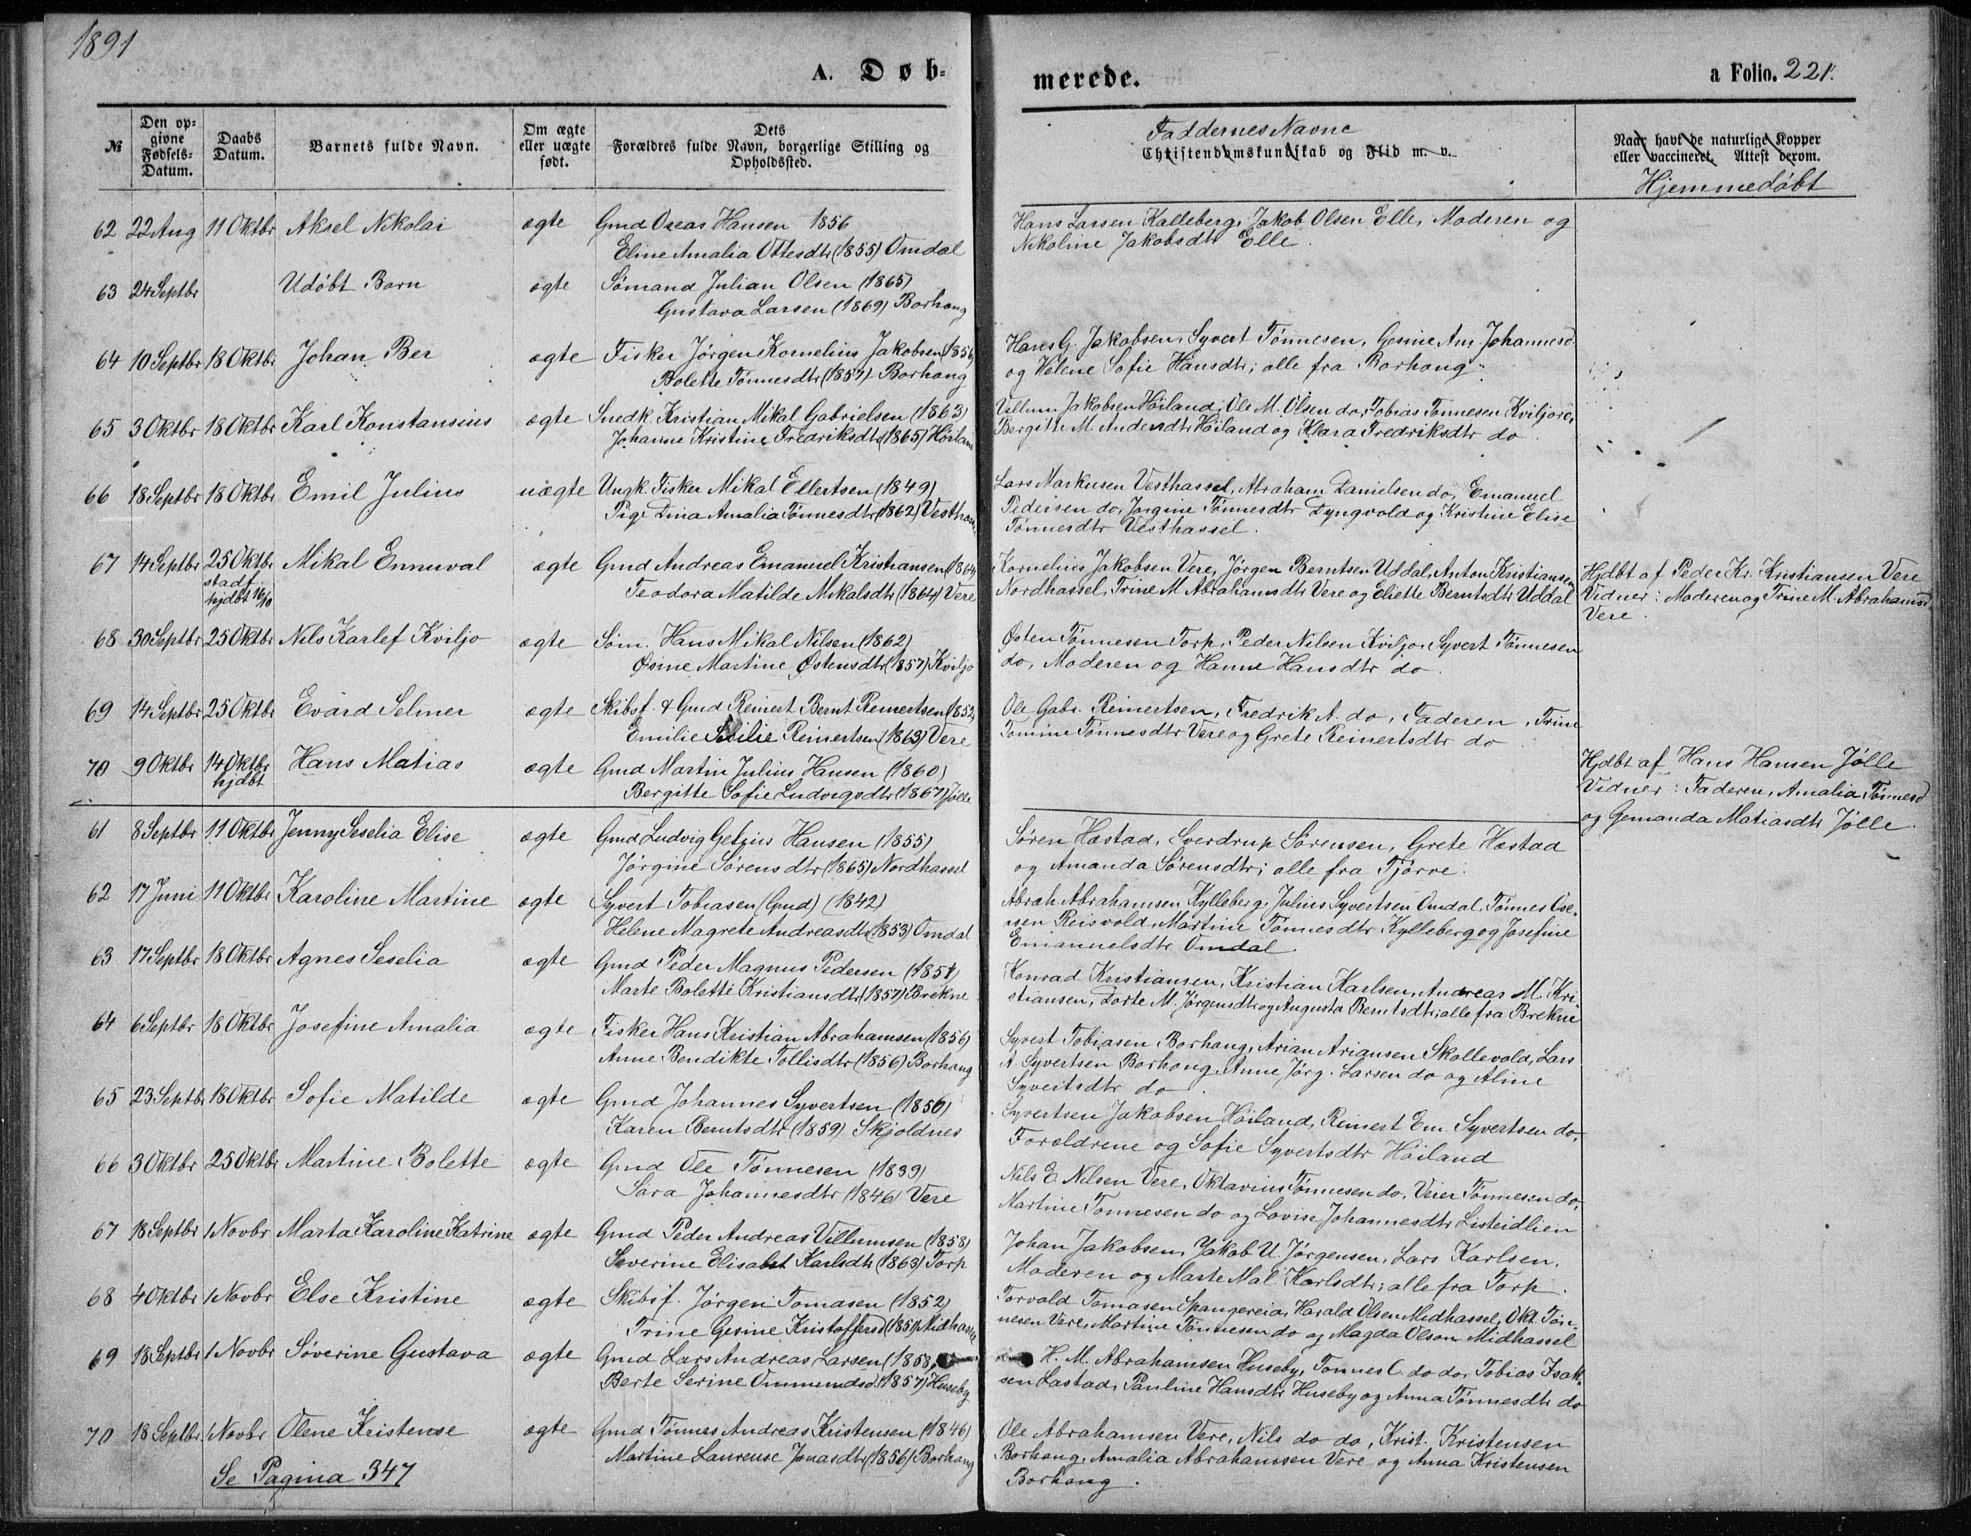 1891
A. Døb-
merede.
a Folio. 221.
№
Den op-
givne
Fødsels-
Datum.
Daabs
Datum.
Barnets fulde Navn.
Om ægte
eller uægte
født.
Dets
Forældres fulde Navn, borgerlige Stilling og
Opholdssted.
Faddernes Navne
Christendomskundskab og Flid m. v.
Naar havt de naturlige Kopper
eller vaccineret. Attest derom.
Hjemmedøbt
62 22 Aug 11 Oktbr Aksel Nikolai ægte Gmd Oseas Hansen 1856
Eline Amalia Ottesdtr (1855) Omdal
Hans Larsen Kalleberg, Jakob Olsen Elle, Moderen og
Nikoline Jakobsdtr Elle.
63 24 Septbr Udøbt Barn ægte Sømand Julian Olsen (1865)
Gustava Larsen (1869) Borhaug
64 10 Septbr 18 Oktbr Johan Ber ægte Fisker Jørgen Kornelius Jakobsen (1856)
Bolette Tønnesdtr (1857) Borhaug
Hans G. Jakobsen, Syvert Tønnesen, Gesine An. Johannesd
og Velene Sofie Hansdtr; alle fra Borhaug
65 3 Oktbr 18 Oktbr Karl Konstansius ægte Snedk. Kristian Mikal Gabrielsen (1863)
Johanne Kristine Fredriksdtr (1865) Høiland
Villum Jakobsen Høiland, Ole M. Olsen do, Tobias Tønnesen Kviljore,
Bergitte M. Andersdtr Høiland og Klara Fredriksdtr do.
66 18 Septbr 18 Oktbr Emil Julius uægte Ungk. Fisker Mikal Ellertsen (1849)
Pige Dina Amalia Tønnesdtr (1862) Vesthassel
Lars Markusen Vesthassel, Abraham Danielsen do, Emanuel
Pedersen do, Jørgine Tønnesdtr Lyngvold og Kristine Elise
Tønnesdtr Vesthassel.
67 14 Septbr 25 Oktbr Mikal Ennuval ægte Gmd Andreas Emanuel Kristiansen (1864)
stadf.
hjdbt 16/10
Teodora Matilde Mikalsdtr (1864) Vere
Kornelius Jakobsen Vere, Jørgen Berntsen Uddal, Anton Kristiansen
Nordhassel, Trine M. Abrahamsdtr Vere og Eliette Berntsdtr Uddal
Hjdbt af Peder Kr. Kristiansen Vere
Vidner: Moderen og Trine M. Abrahamsd
Vere.
68 30 Septbr 25 Oktbr Nils Karlef Kviljo ægte Søm. Hans Mikal Nilsen (1862)
Osine Martine Østensdtr (1857) Kviljo
Østen Tønnesen Torp, Peder Nilsen Kviljo, Syvert Tønnesen
do, Moderen og Hanne Hansdtr do
69 14 Septbr 25 Oktbr Evard Selmer ægte Skibsf. & Gmd Reinert Bernt Reinertsen (1852)
Emilie Sesilie Reinertsen (1863) Vere
Ole Gabr. Reinertsen, Fredrik A. do, Faderen, Trine
Tomine Tønnesdtr Vere og Grete Reinertsdtr do
70 9 Oktbr 14 Oktbr Hans Matias ægte Gmd Martin Julius Hansen (1860)
hjdbt
Bergitte Sofie Ludvigsdtr (1867) Jølle
Hjdbt af Hans Hansen Jølle
Vidner: Faderen, Amalia Tønnesd
og Gemanda Matiasdtr Jølle.
61 8 Septbr 11 Oktbr Jenny Seselia Elise ægte Gmd Ludvig Getzius Hansen (1855)
Jørgine Sørensdtr (1865) Nordhassel
Søren Hastad, Sverdrup Sørensen, Grete Hastad
og Amanda Sørensdtr; alle fra Tjørve.
62 17 Juni 11 Oktbr Karoline Martine ægte Syvert Tobiasen (Gmd) (1842)
Helene Magrete Andreasdtr (1853) Omdal
Abrah Abrahamsen Kylleberg, Julius Syvertsen Omdal, Tønnes Ose-
asen Reisvold, Martine Tønnesdtr Kylleberg og Josefine
Emanuelsdtr Omdal.
63 17 Septbr 18 Oktbr Agnes Seselia ægte Gmd Peder Magnus Pedersen (1857)
Marte Bolette Kristiansdtr (1857) Brekne
Konrad Kristiansen, Kristian Karlsen, Andreas M. Kri-
stiansen, Dorte M. Jørgensdtr og Augusta Berntsdtr; alle fra Brekne
64 6 Septbr 18 Oktbr Josefine Amalia ægte Fisker Hans Kristian Abrahamsen (1856)
Anne Bendikte Tollisdtr (1856) Borhaug
Syvert Tobiasen Borhaug, Arian Ariansen Skollevold, Lars
A. Syvertsen Borhaug, Anne Jørg. Larsen do og Aline
Syvertsdtr do.
65 23 Septbr 18 Oktbr Sofie Matilde ægte Gmd Johannes Syvertsen (1856)
Karen Berntsdtr (1859) Skjoldnes
Syvertsen Jakobsen Høiland, Reinert Em. Syvertsen do,
Forældrene og Sofie Syvertsdtr Høiland
66 3 Oktbr 25 Oktbr Martine Bolette ægte Gmd Ole Tønnesen (1839)
Sara Johannesdtr (1846) Vere
Nils E. Nilsen Vere, Oktavius Tønnesen do, Veier Tønnesen do,
Martine Tønnesen do og Lovise Johannesdtr Listeidlien
67 18 Septbr 1 Novbr Marta Karoline Katrine ægte Gmd Peder Andreas Villumsen (1858)
Severine Elisabet Karlsdtr (1863) Torp
Johan Jakobsen, Jakob U. Jørgensen, Lars Karlsen,
Moderen og Marte Mal. Karlsdtr; alle fra Torp.
68 4 Oktbr 1 Novbr Else Kristine ægte Skibsf. Jørgen Tomasen (1852)
Trine Gesine Kristoffersd (1851) Midhassel
Torvald Tomasen Spangereid, Harald Olsen Midhassel, Okt. Tøn-
nesen Vere, Martine Tønnesen do og Magda Olsen Midhassel
69 18 Septbr 1 Novbr Søverine Gustava ægte Gmd Lars Andreas Larsen (1858)
Berte Serine Ommundsd (1857) Huseby
H. M. Abrahamsen Huseby, Tønnes C. do do, Tobias Isak-
sen Lastad, Pauline Hansdtr Huseby og Anna Tønnesdtr do
70 18 Septbr 1 Novbr Olene Kristense ægte Gmd Tønnes Andreas Kristensen (1846)
Martine Laurense Jonasdtr (1856) Borhaug
Ole Abrahamsen Vere, Nils do do, Krist. Kristensen
Borhaug, Amalia Abrahamsen Vere og Anna Kristensen
Borhaug.
Se Pagina 347